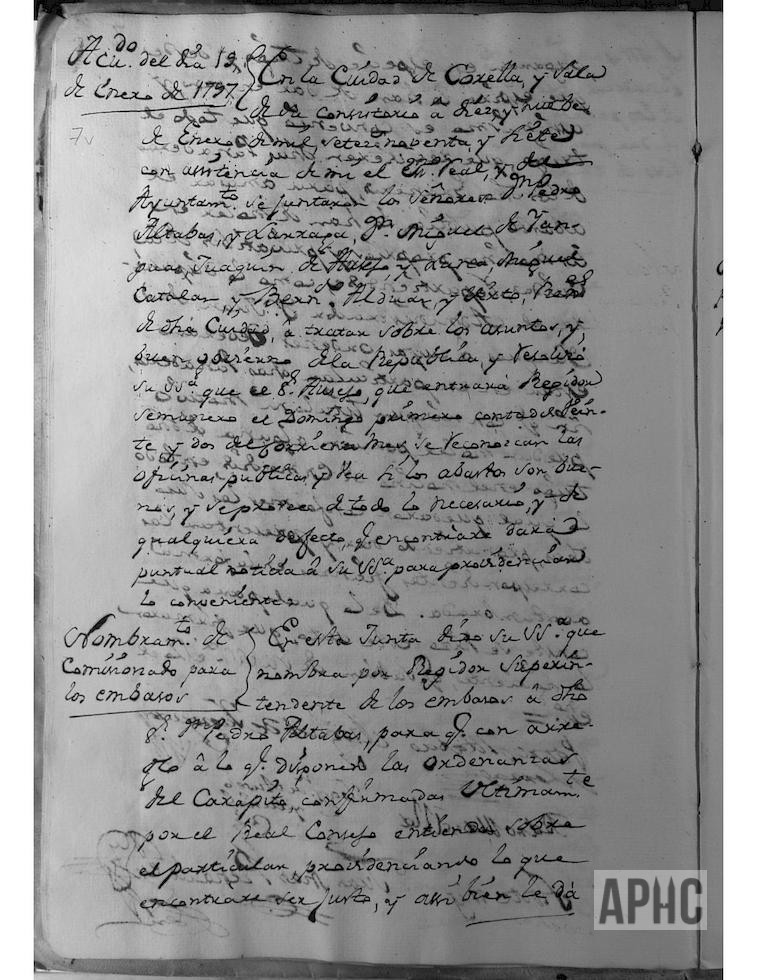 Acu.do del dia 19
de Enero de 1797
7v
En la Ciudad de Corella, y Sala
de su consistorio a diez y nueve
de Enero de mil, setez. noventa y siete
con asistencia de mi el Es.no Real, y de su
Ayuntam.to se juntaron los Señores D.n Pedro
Altabas, y Larraga, D.n Miguel de
Juaquin de Ausejo y Miguel
Catalan, y Bern.do Aldunar, y Reg.es
de dha Ciudad, â tratar sobre los asuntos, y
buen govierno de la Republica y resolvió
su Ss.a que el S.r Ausejo, que entrará Regidor
semanero el Domingo primero contado vein-
te y dos del corriente mes, se reconozcan las
oficinas publicas y vea si los abastos son bue-
nos, y se provee de todo lo necesario, y de
qualquiera defecto, q.e encontrare dará
puntual noticia â su Ss.a para providenciar
lo conveniente
Nombram.to de
Comisionado para
los embasos
En esta Junta dixo su Ss.a que
nombra por Regidor Superin-
tendente de los embasos â dho
S.r D.n Pedro Altabas, para q.e con arre-
glo â lo q.e disponen las ordenanzas
del Carapito, confirmadas Ultimam.te
por el Real Consejo entienda sobre
el particular, providenciando lo que
encontrare ser justo, y assi bien le dá
APHC